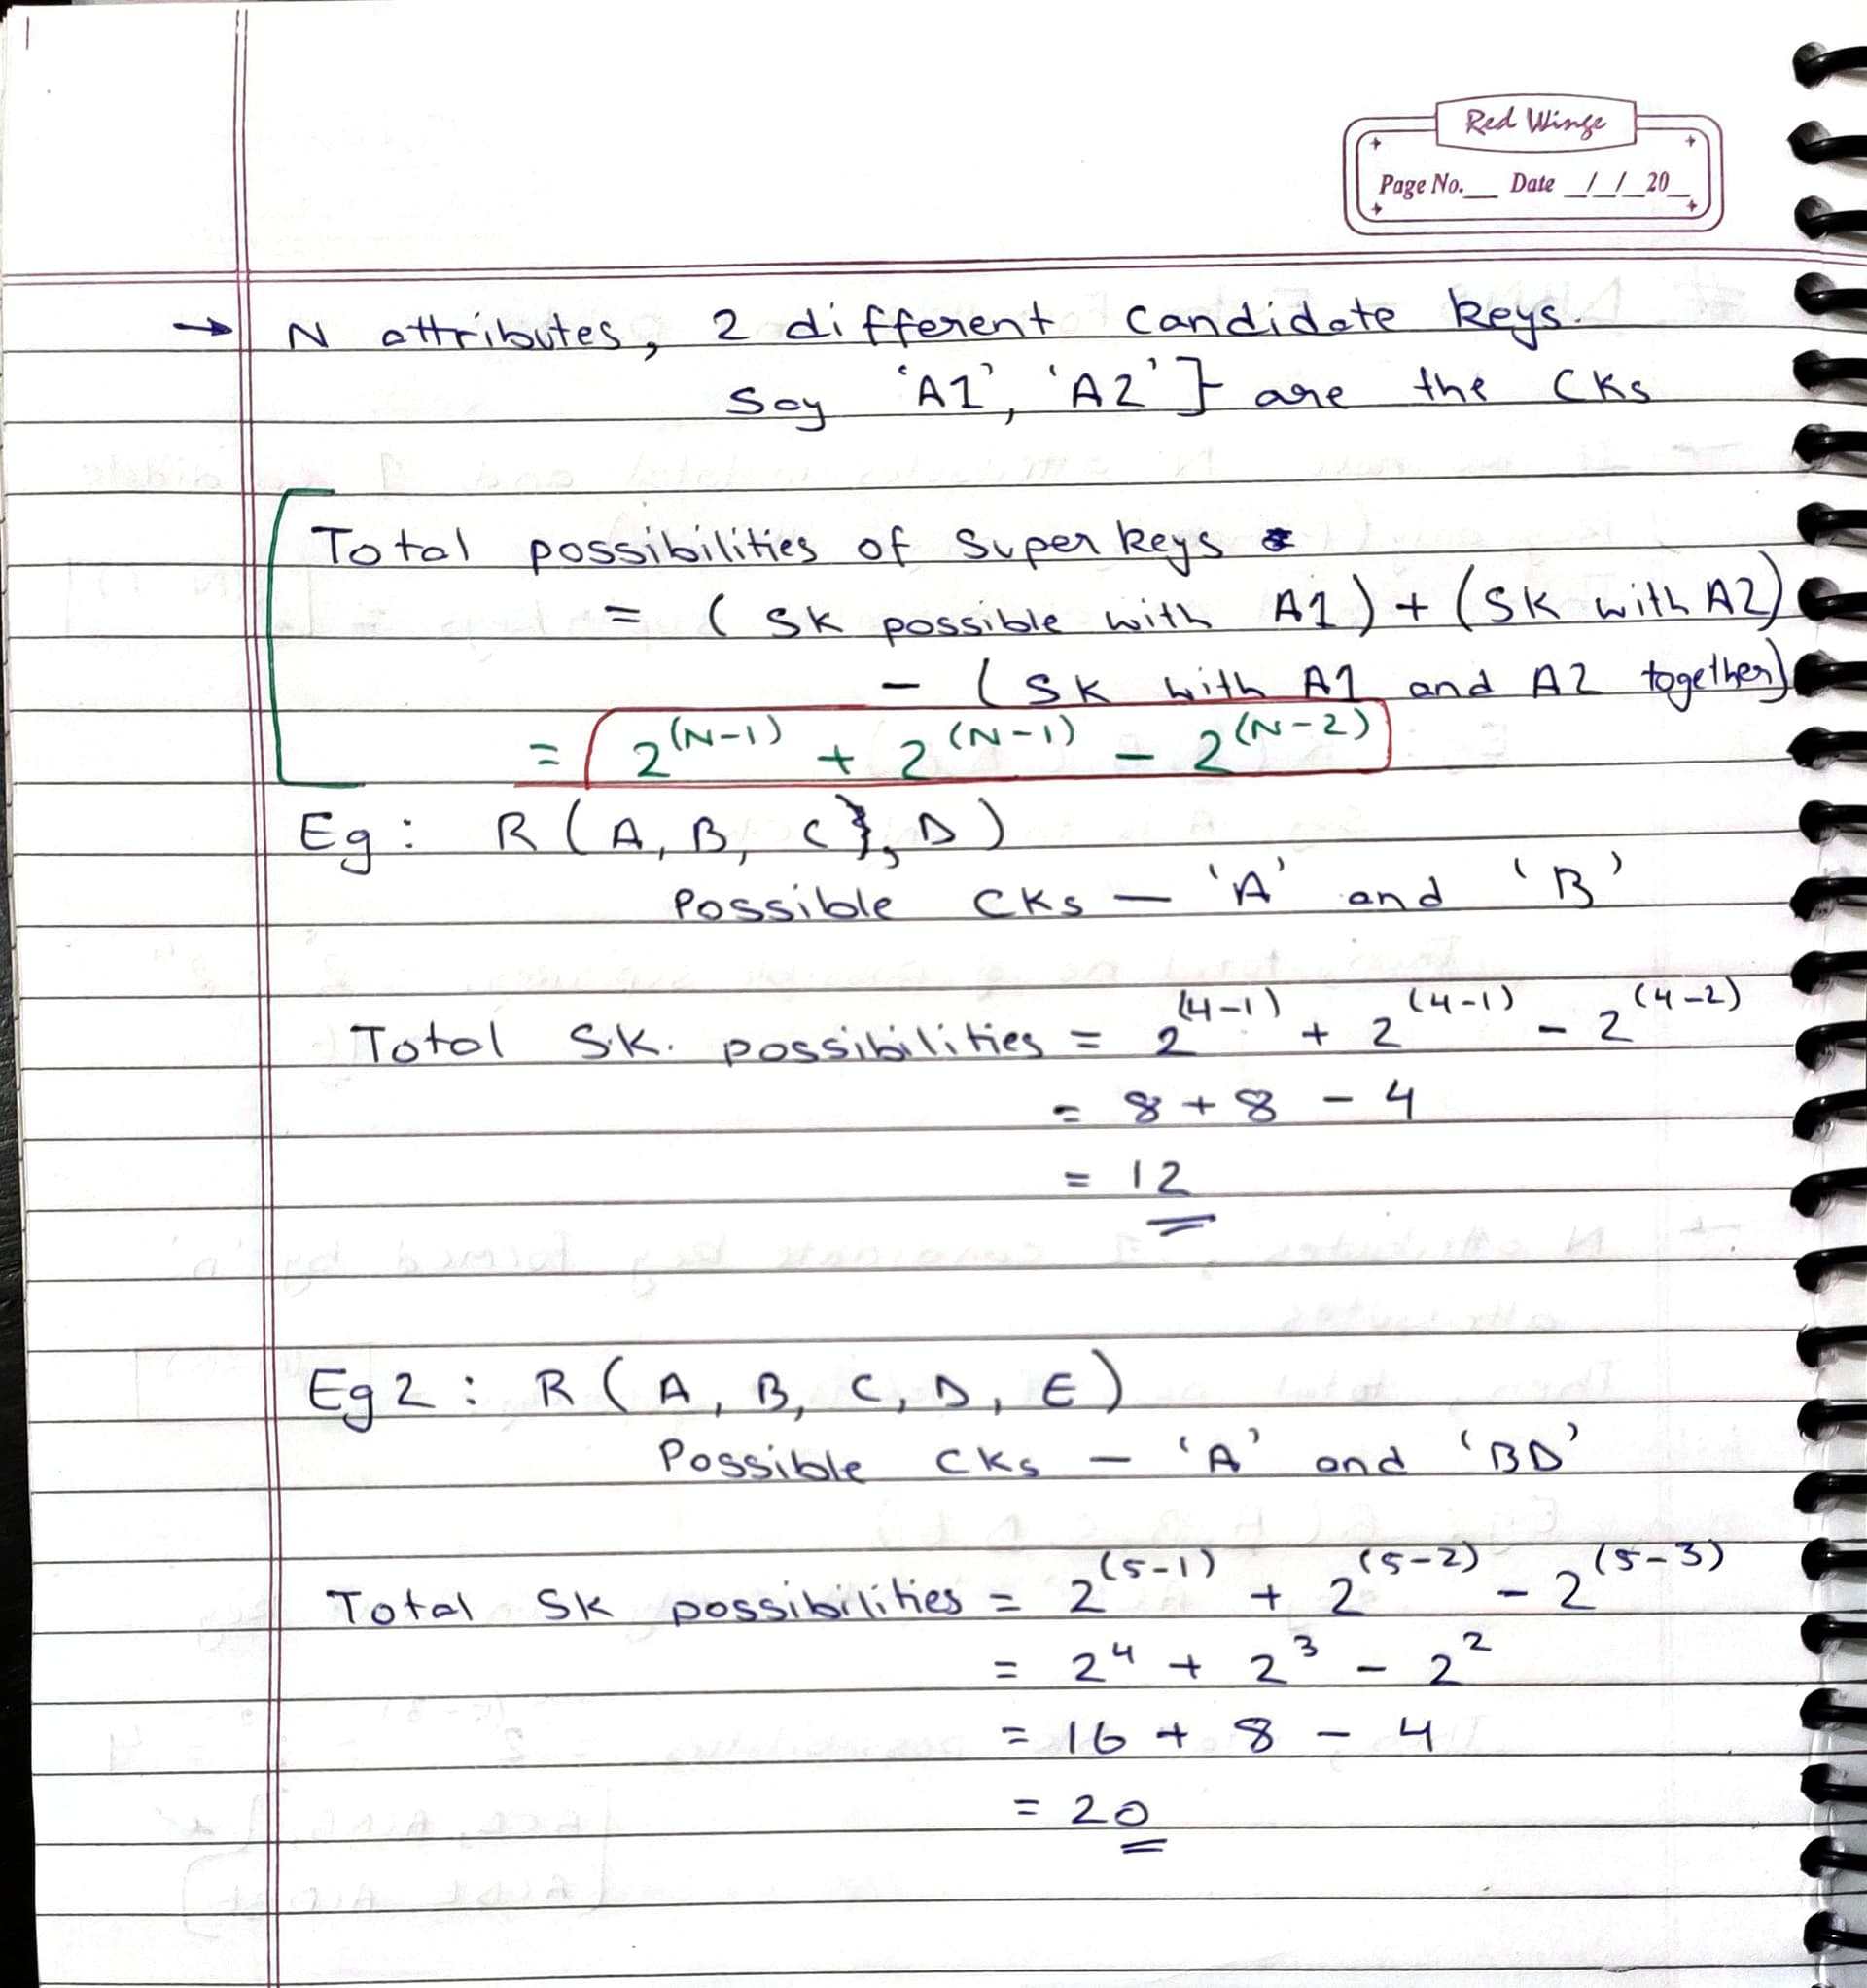 Red Winge
Page No.__ Date _/_/_20_
→ N attributes, 2 different candidate keys.
Say 'A1', 'A2'} are the CKs
Total possibilities of Super keys
= (SK possible with A1) + (SK with A2)
- (SK with A1 and A2 together)
= 2^(N-1) + 2^(N-1) - 2^(N-2)
Eg: R (A, B, C, D)
Possible CKs - 'A' and 'B'
Total S.K. possibilities = 2^(4-1) + 2^(4-1) - 2^(4-2)
= 8 + 8 - 4
= 12
Eg 2: R (A, B, C, D, E)
Possible CKs - 'A' and 'BD'
Total SK possibilities = 2^(5-1) + 2^(5-2) - 2^(5-3)
= 2^4 + 2^3 - 2^2
= 16 + 8 - 4
= 20